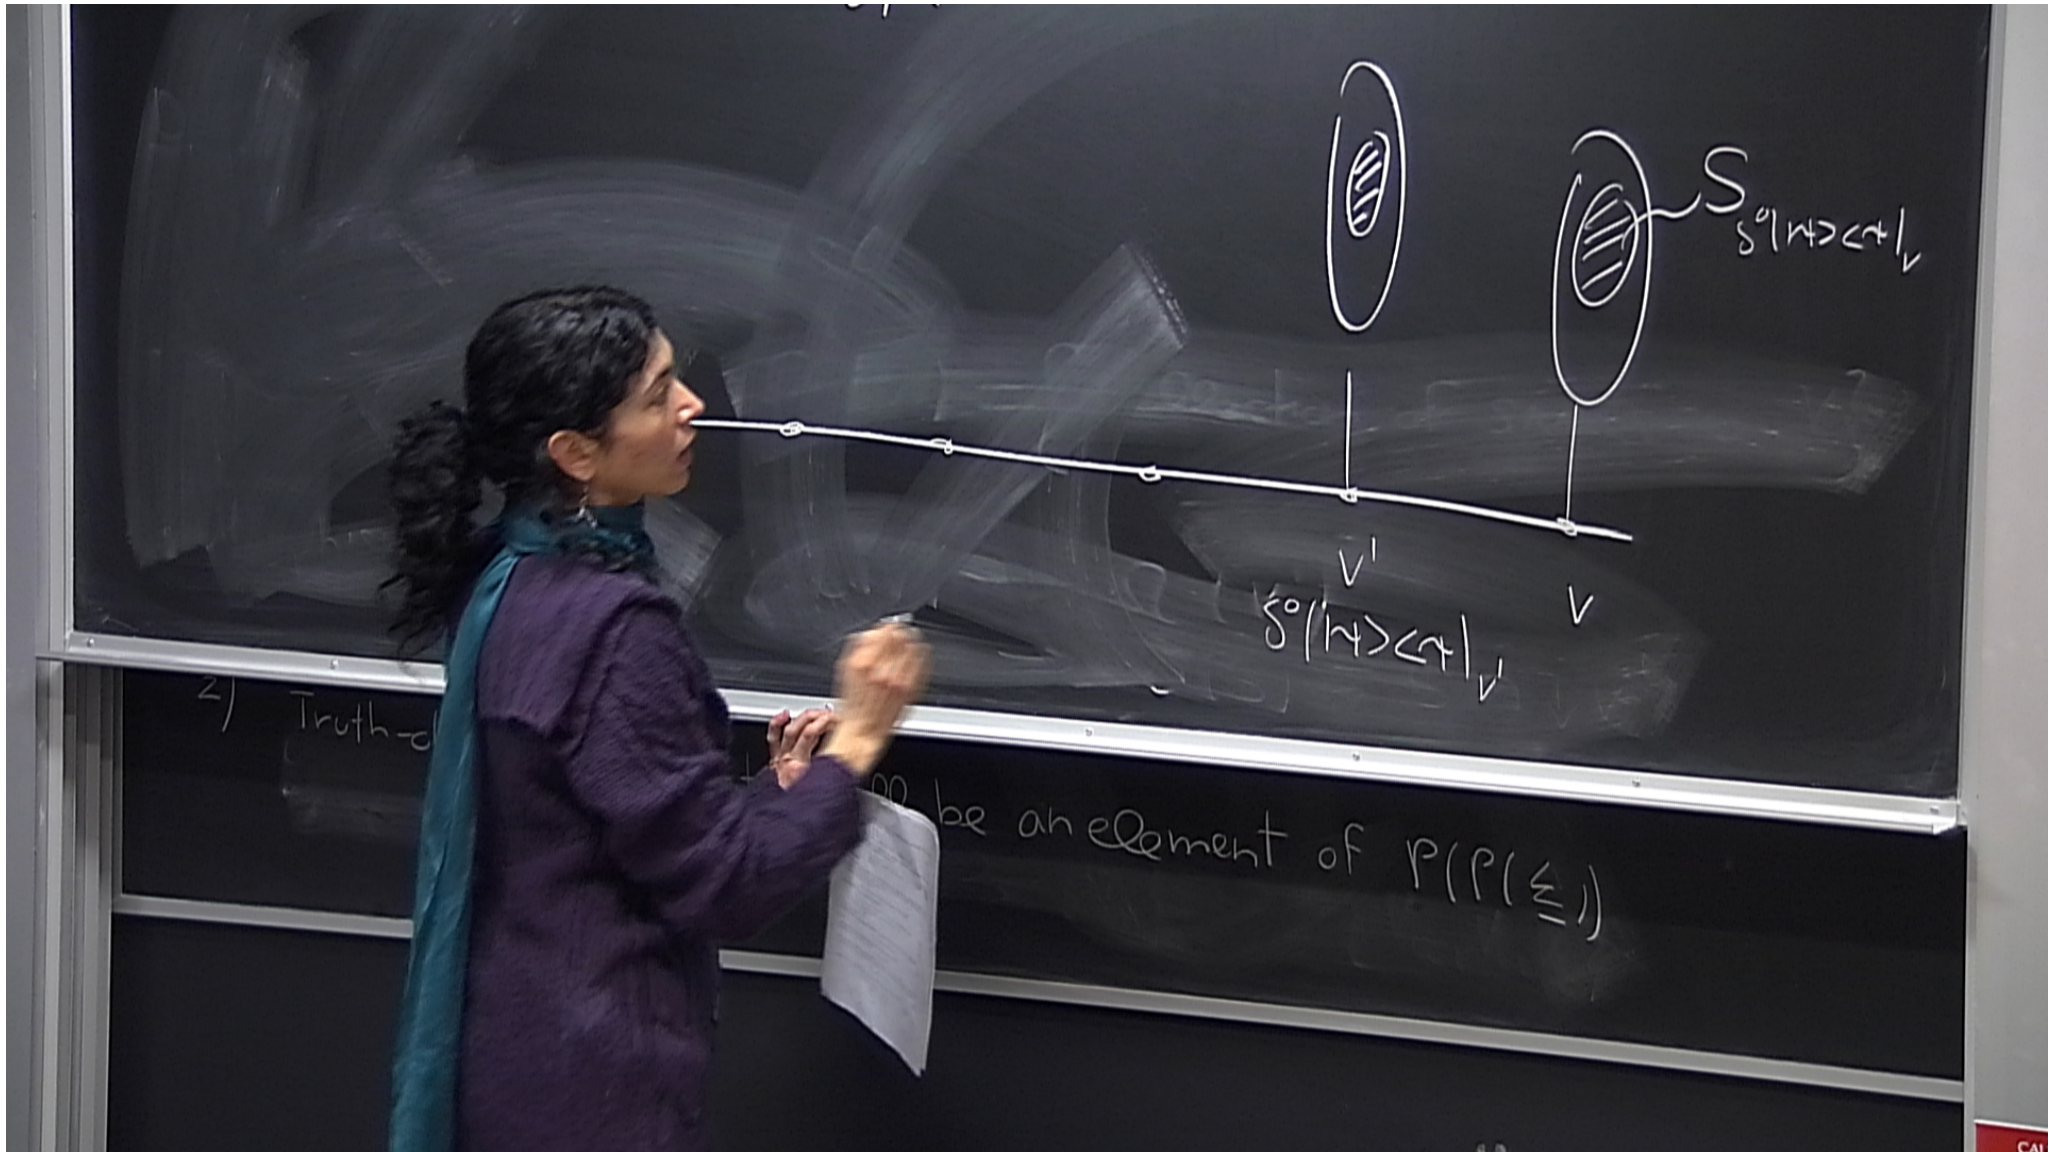 S_{δ°(|ψ><ψ|)_V}
V'
V
δ°(|ψ><ψ|)_{V'}
2) Truth-
be an element of P(P(Σ))
CAU